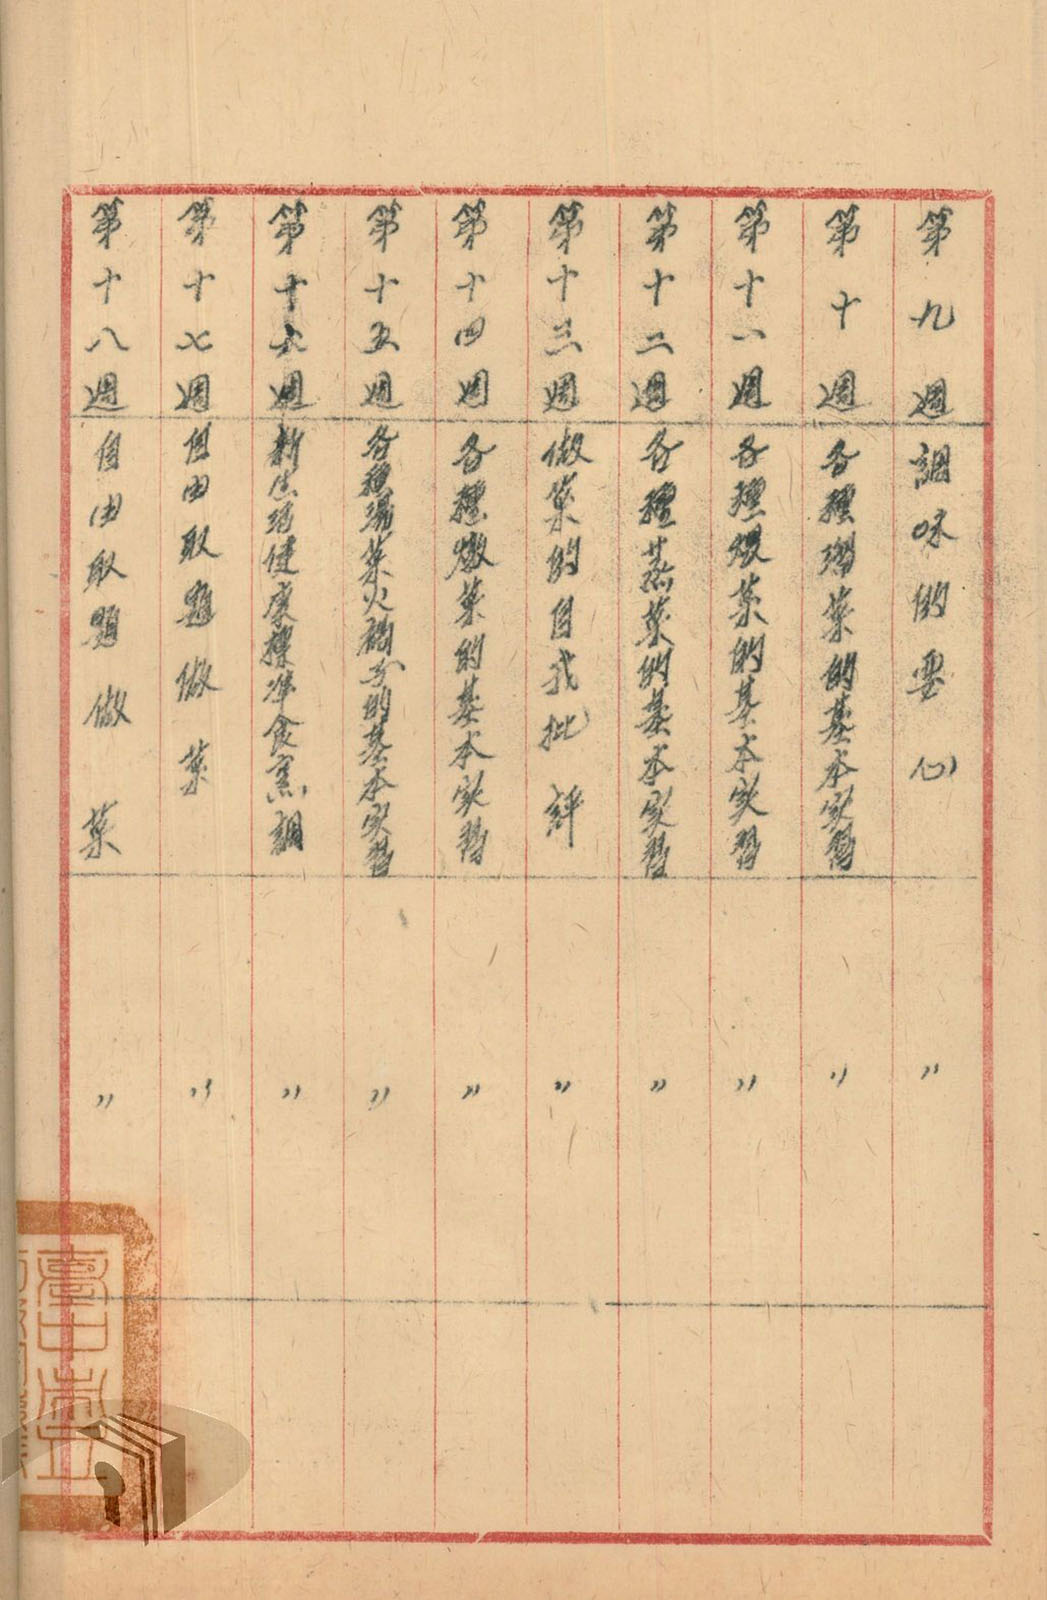 第九週 調味的要心 〃
第十週 各種溜菜的基本实習 〃
第十一週 各種煨菜的基本实習 〃
第十二週 各種蒸菜的基本实習 〃
第十三週 做菜的自我批評 〃
第十四週 各種燉菜的基本实習 〃
第十五週 各種湯菜火候分的基本实習 〃
第十六週 新生活健康標準食烹調 〃
第十七週 自由取題做菜 〃
第十八週 自由取題做菜 〃
臺中市